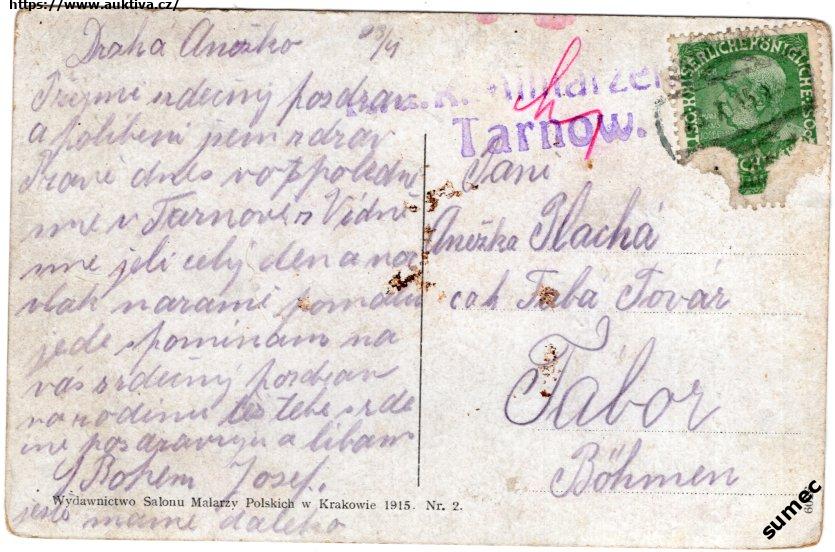 https://www.auktiva.cz/
Draha Anežko
Přijmi srdečný pozdrav
a políbení jsem zdrav
Právě dnes v 07 poledne
sme v Tarnově z Vídně
sme jeli celý den a noc
vlak naramě pomalu
jede spominam na
vás srdečný pozdrav
na rodinu tebe srde
čně pozdravuju a libam
S Bohem Josef.
jeste mame daleko
Tarnow.
Paní
Anežka Plachá
c a k Taba Továr
Tábor
Böhmen
Wydawnictwo Salonu Malarzy Polskich w Krakowie 1915. Nr. 2.
sumec